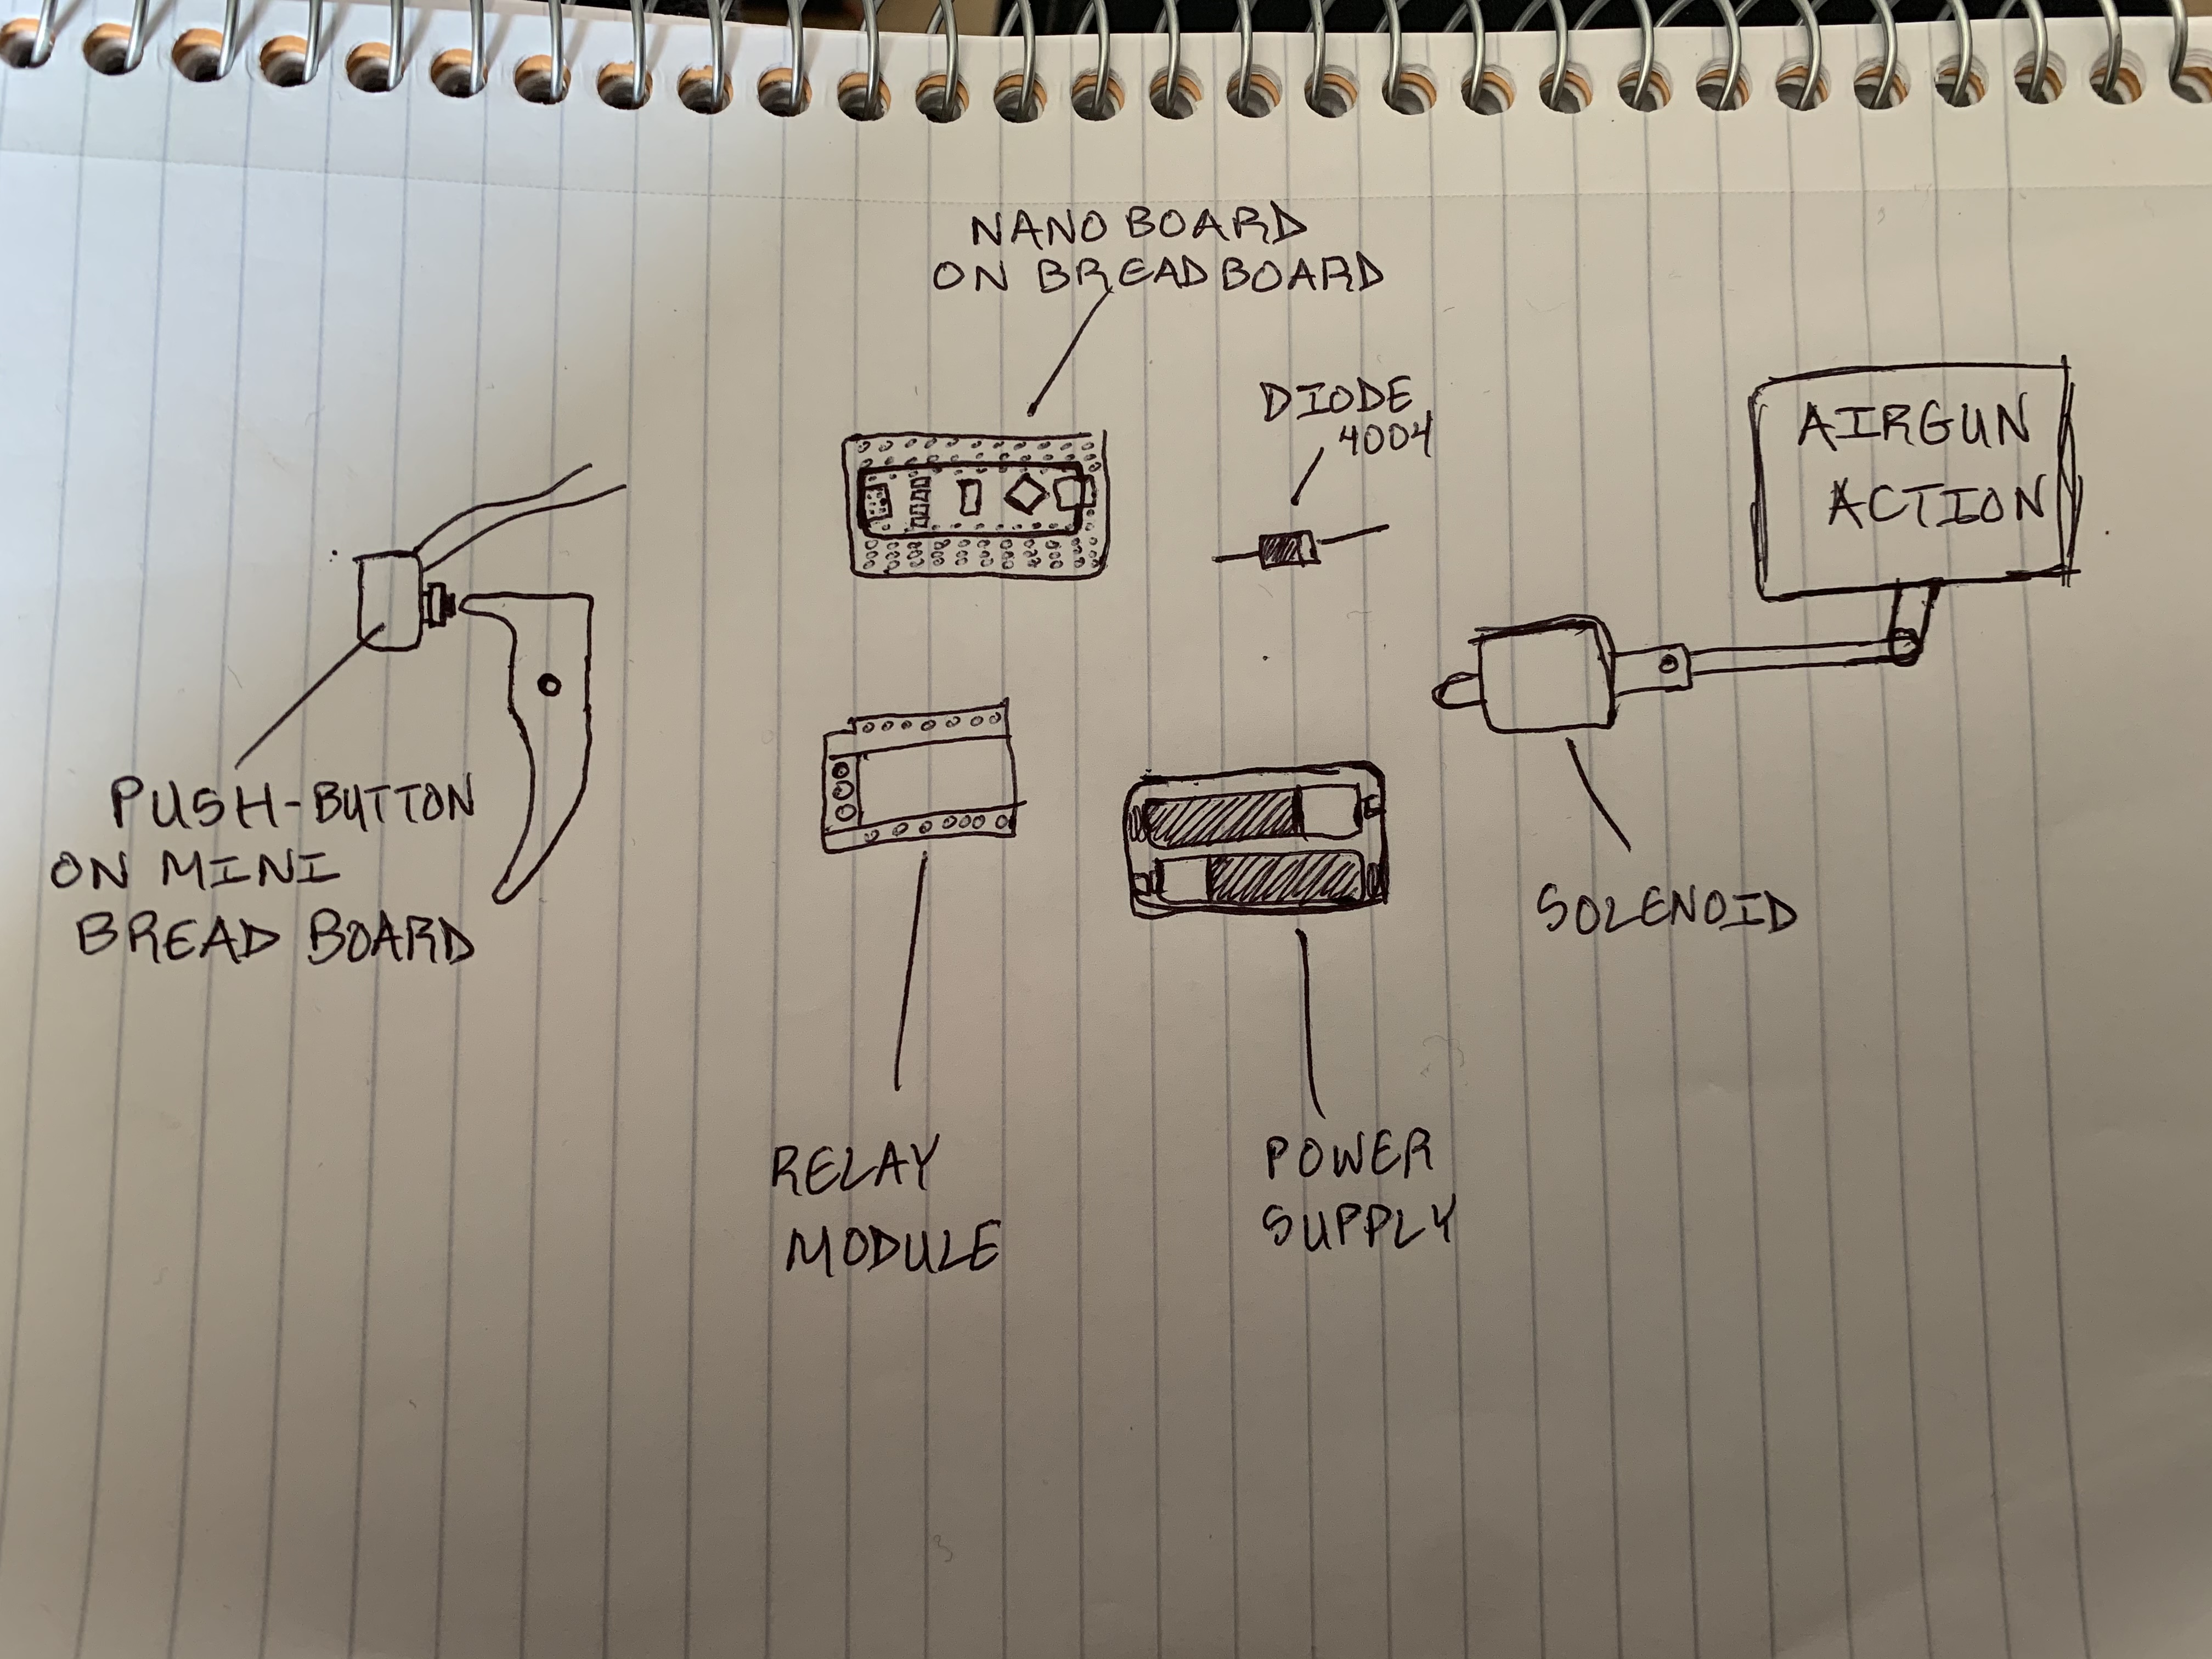 NANO BOARD
ON BREADBOARD
DIODE
4004
AIRGUN
ACTION
PUSH-BUTTON
ON MINI
BREAD BOARD
SOLENOID
RELAY
MODULE
POWER
SUPPLY